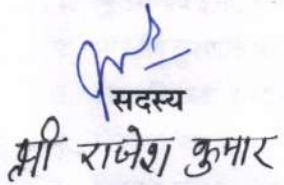 सदस्य
श्री राजेश कुमार